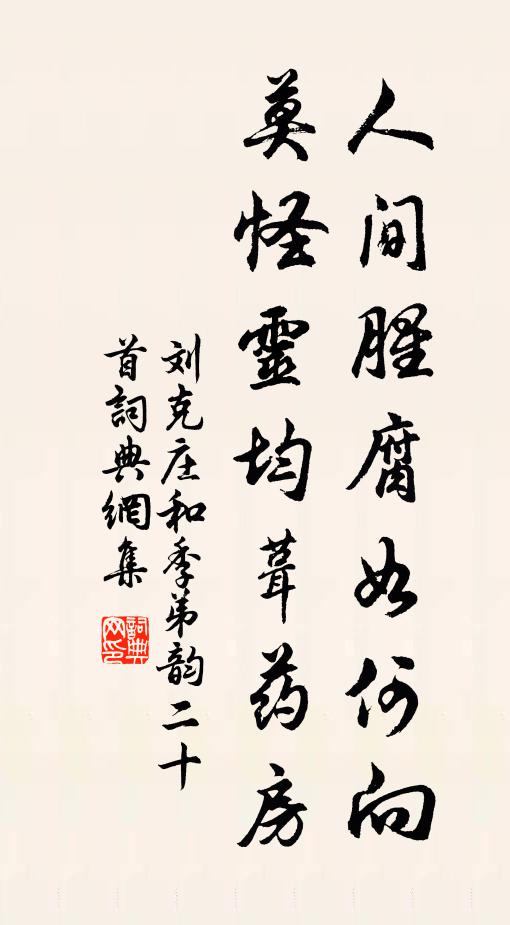 人间腥腐如何向
莫怪靈均葺药房
刘克庄和季弟韵二十
首詞典網集
詞典
网印